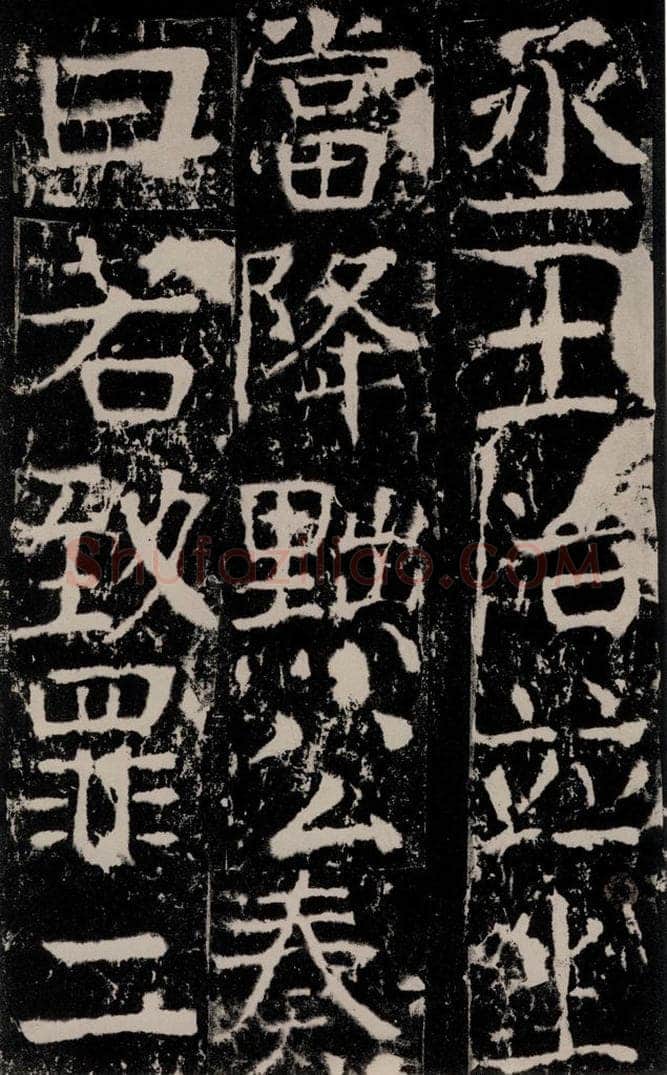 丞王浩並坐
當降黜公奏
曰若致罪二
shufaziliao.COM